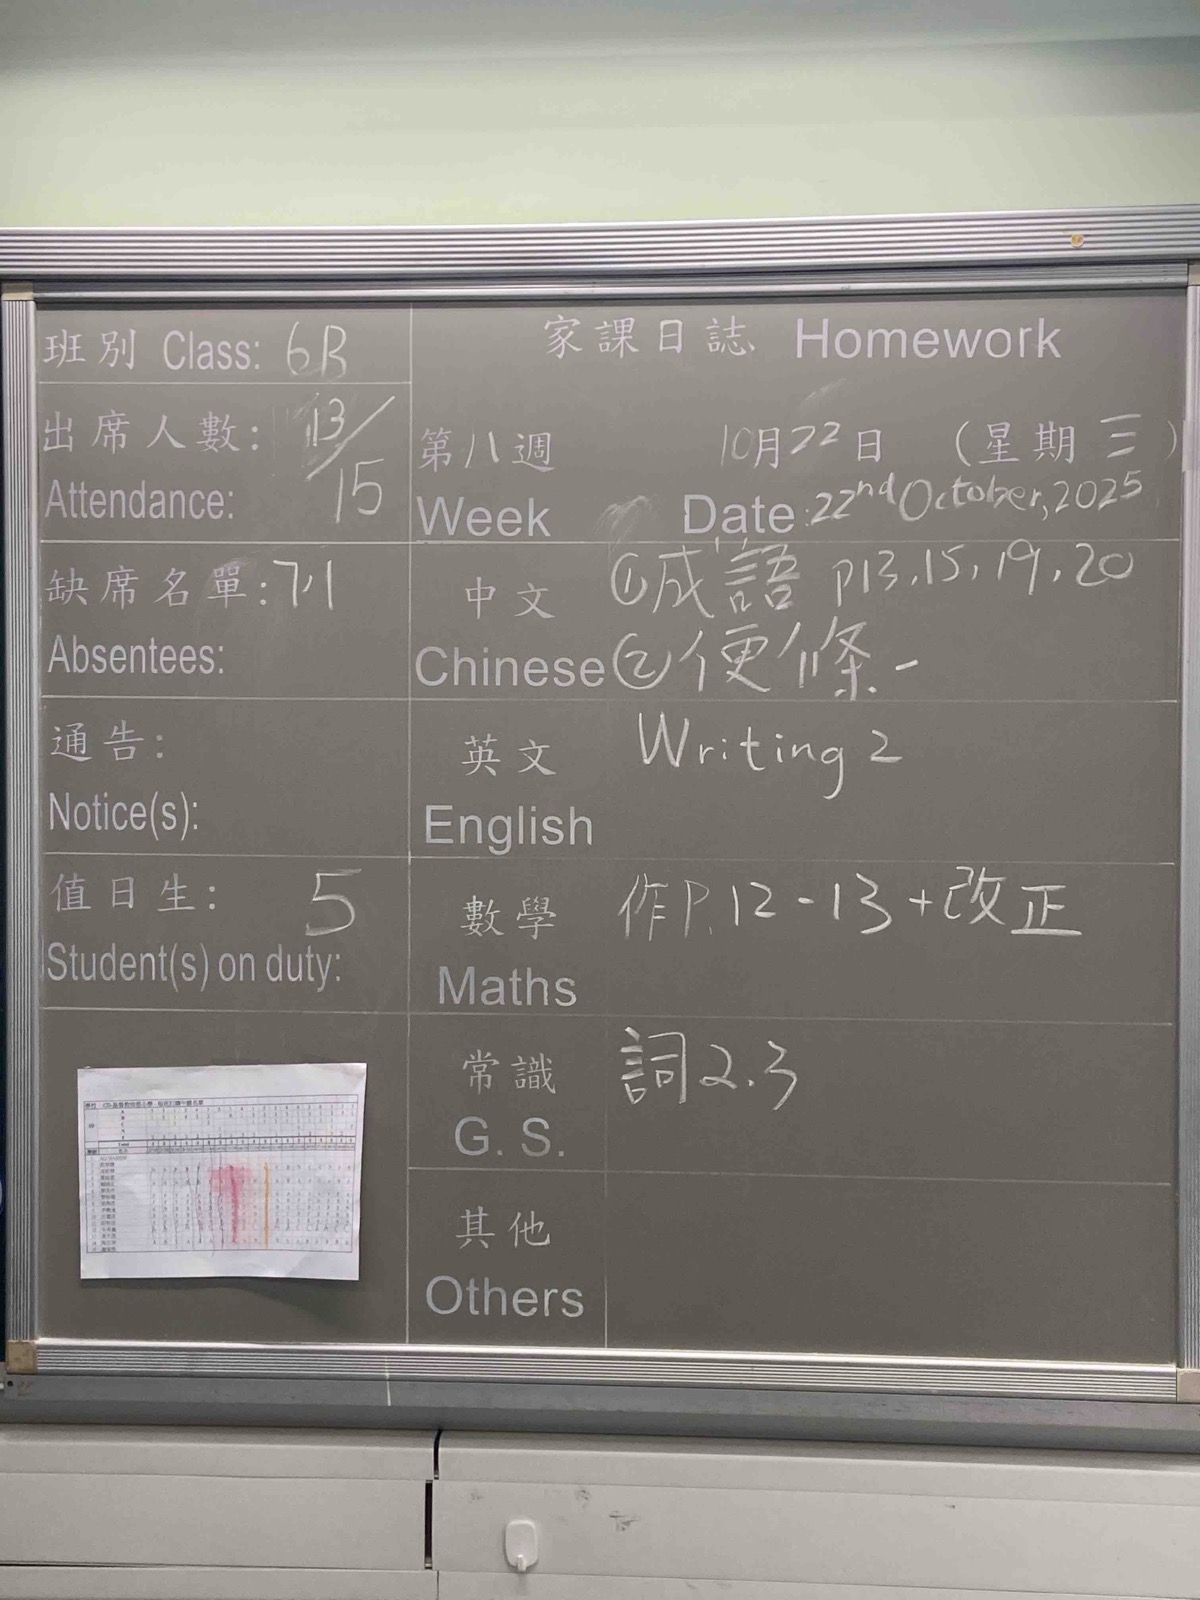 班別 Class: 6B
出席人數: 13/15
Attendance:
缺席名單: 7.1
Absentees:
通告:
Notice(s):
值日生: 5
Student(s) on duty:
家課日誌 Homework
第八週 10月22日 (星期三)
Week Date: 22nd October, 2025
中文 ①成語 p13, 15, 19, 20
Chinese ②便條一
英文 Writing 2
English
數學 作P. 12-13+改正
Maths
常識 詞2.3
G. S.
其他
Others